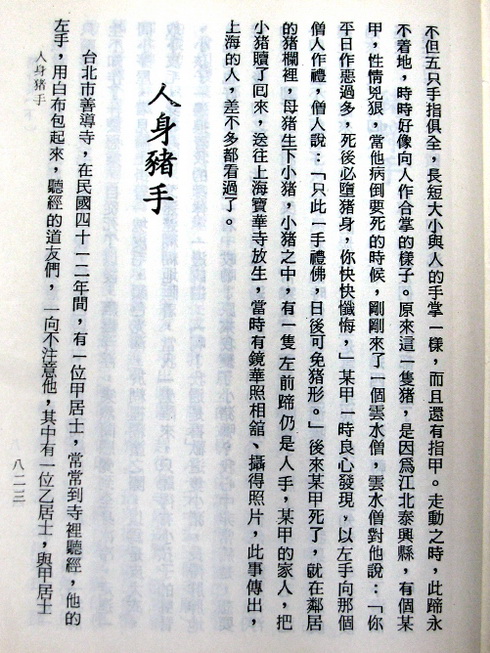 不但五只手指俱全，長短大小與人的手掌一樣，而且還有指甲。走動之時，此蹄永
不着地，時時好像向人作合掌的樣子。原來這一隻豬，是因爲江北泰興縣，有個某
甲，性情兇狠，當他病倒要死的時候，剛剛來了一個雲水僧，雲水僧對他說：「你
平日作惡過多，死後必墮豬身，你快快懺悔，」某甲一時良心發現，以左手向那個
僧人作禮，僧人說：「只此一手禮佛，日後可免豬形。」後來某甲死了，就在鄰居
的猪欄裡，母猪生下小猪，小猪之中，有一隻左前蹄仍是人手，某甲的家人，把
小猪贖了囘來，送往上海寶華寺放生，當時有鏡華照相舘、攝得照片，此事傳出，
上海的人，差不多都看過了。
人身豬手
台北市善導寺，在民國四十一二年間，有一位甲居士，常常到寺裡聽經，他的
左手，用白布包起來，聽經的道友們，一向不注意他，其中有一位乙居士，與甲居士
人身猪手
八二三